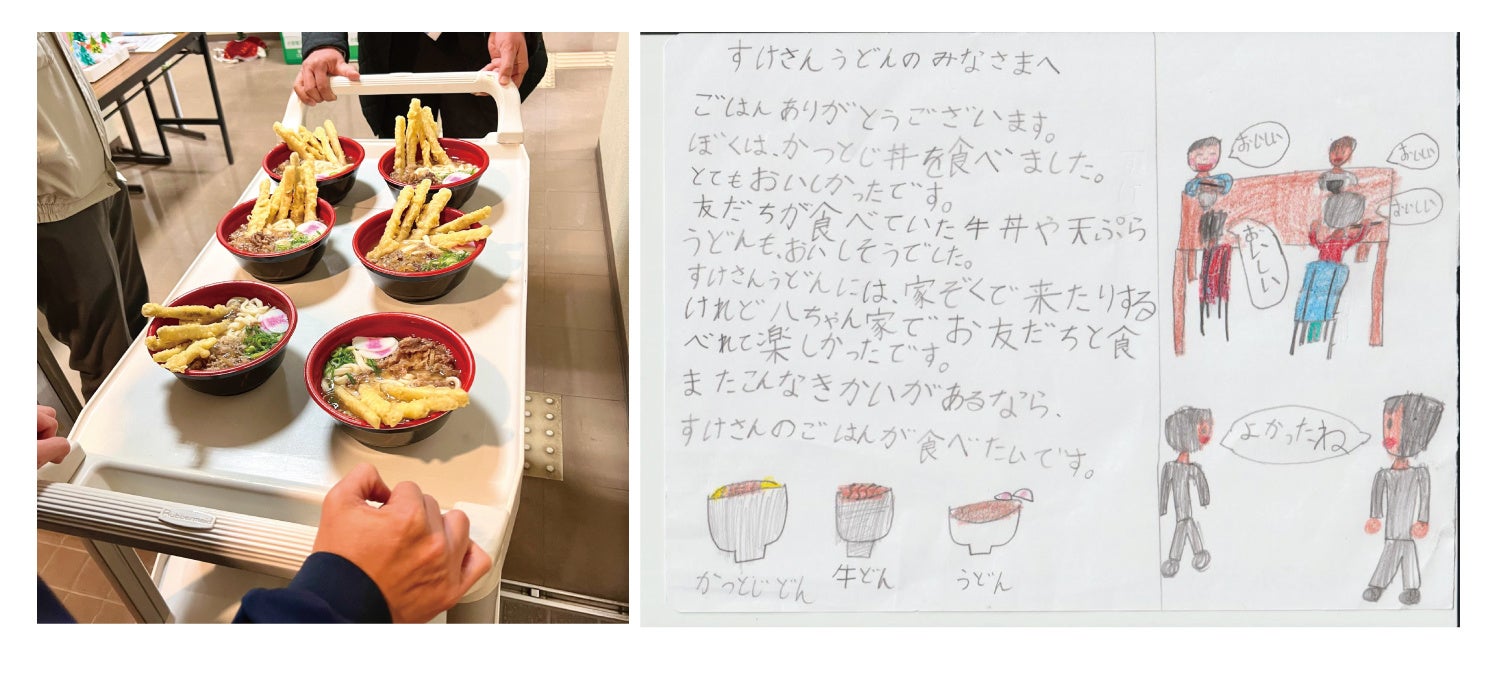 Rubbermaid
すけさんうどんのみなさまへ
ごはんありがとうございます。
ぼくは、かつとじ丼を食べました。
とてもおいしかったです。
友だちが食べていた牛丼や天ぷら
うどんも、おいしそうでした。
すけさんうどんには、家ぞくで来たりする
けれど八ちゃん家でお友だちと食
べれて楽しかったです。
またこんなきかいがあるなら、
すけさんのごはんが食べたいです。
かつとじどん
牛どん
うどん
おいしい
おいしい
おいしい
おいしい
よかったね